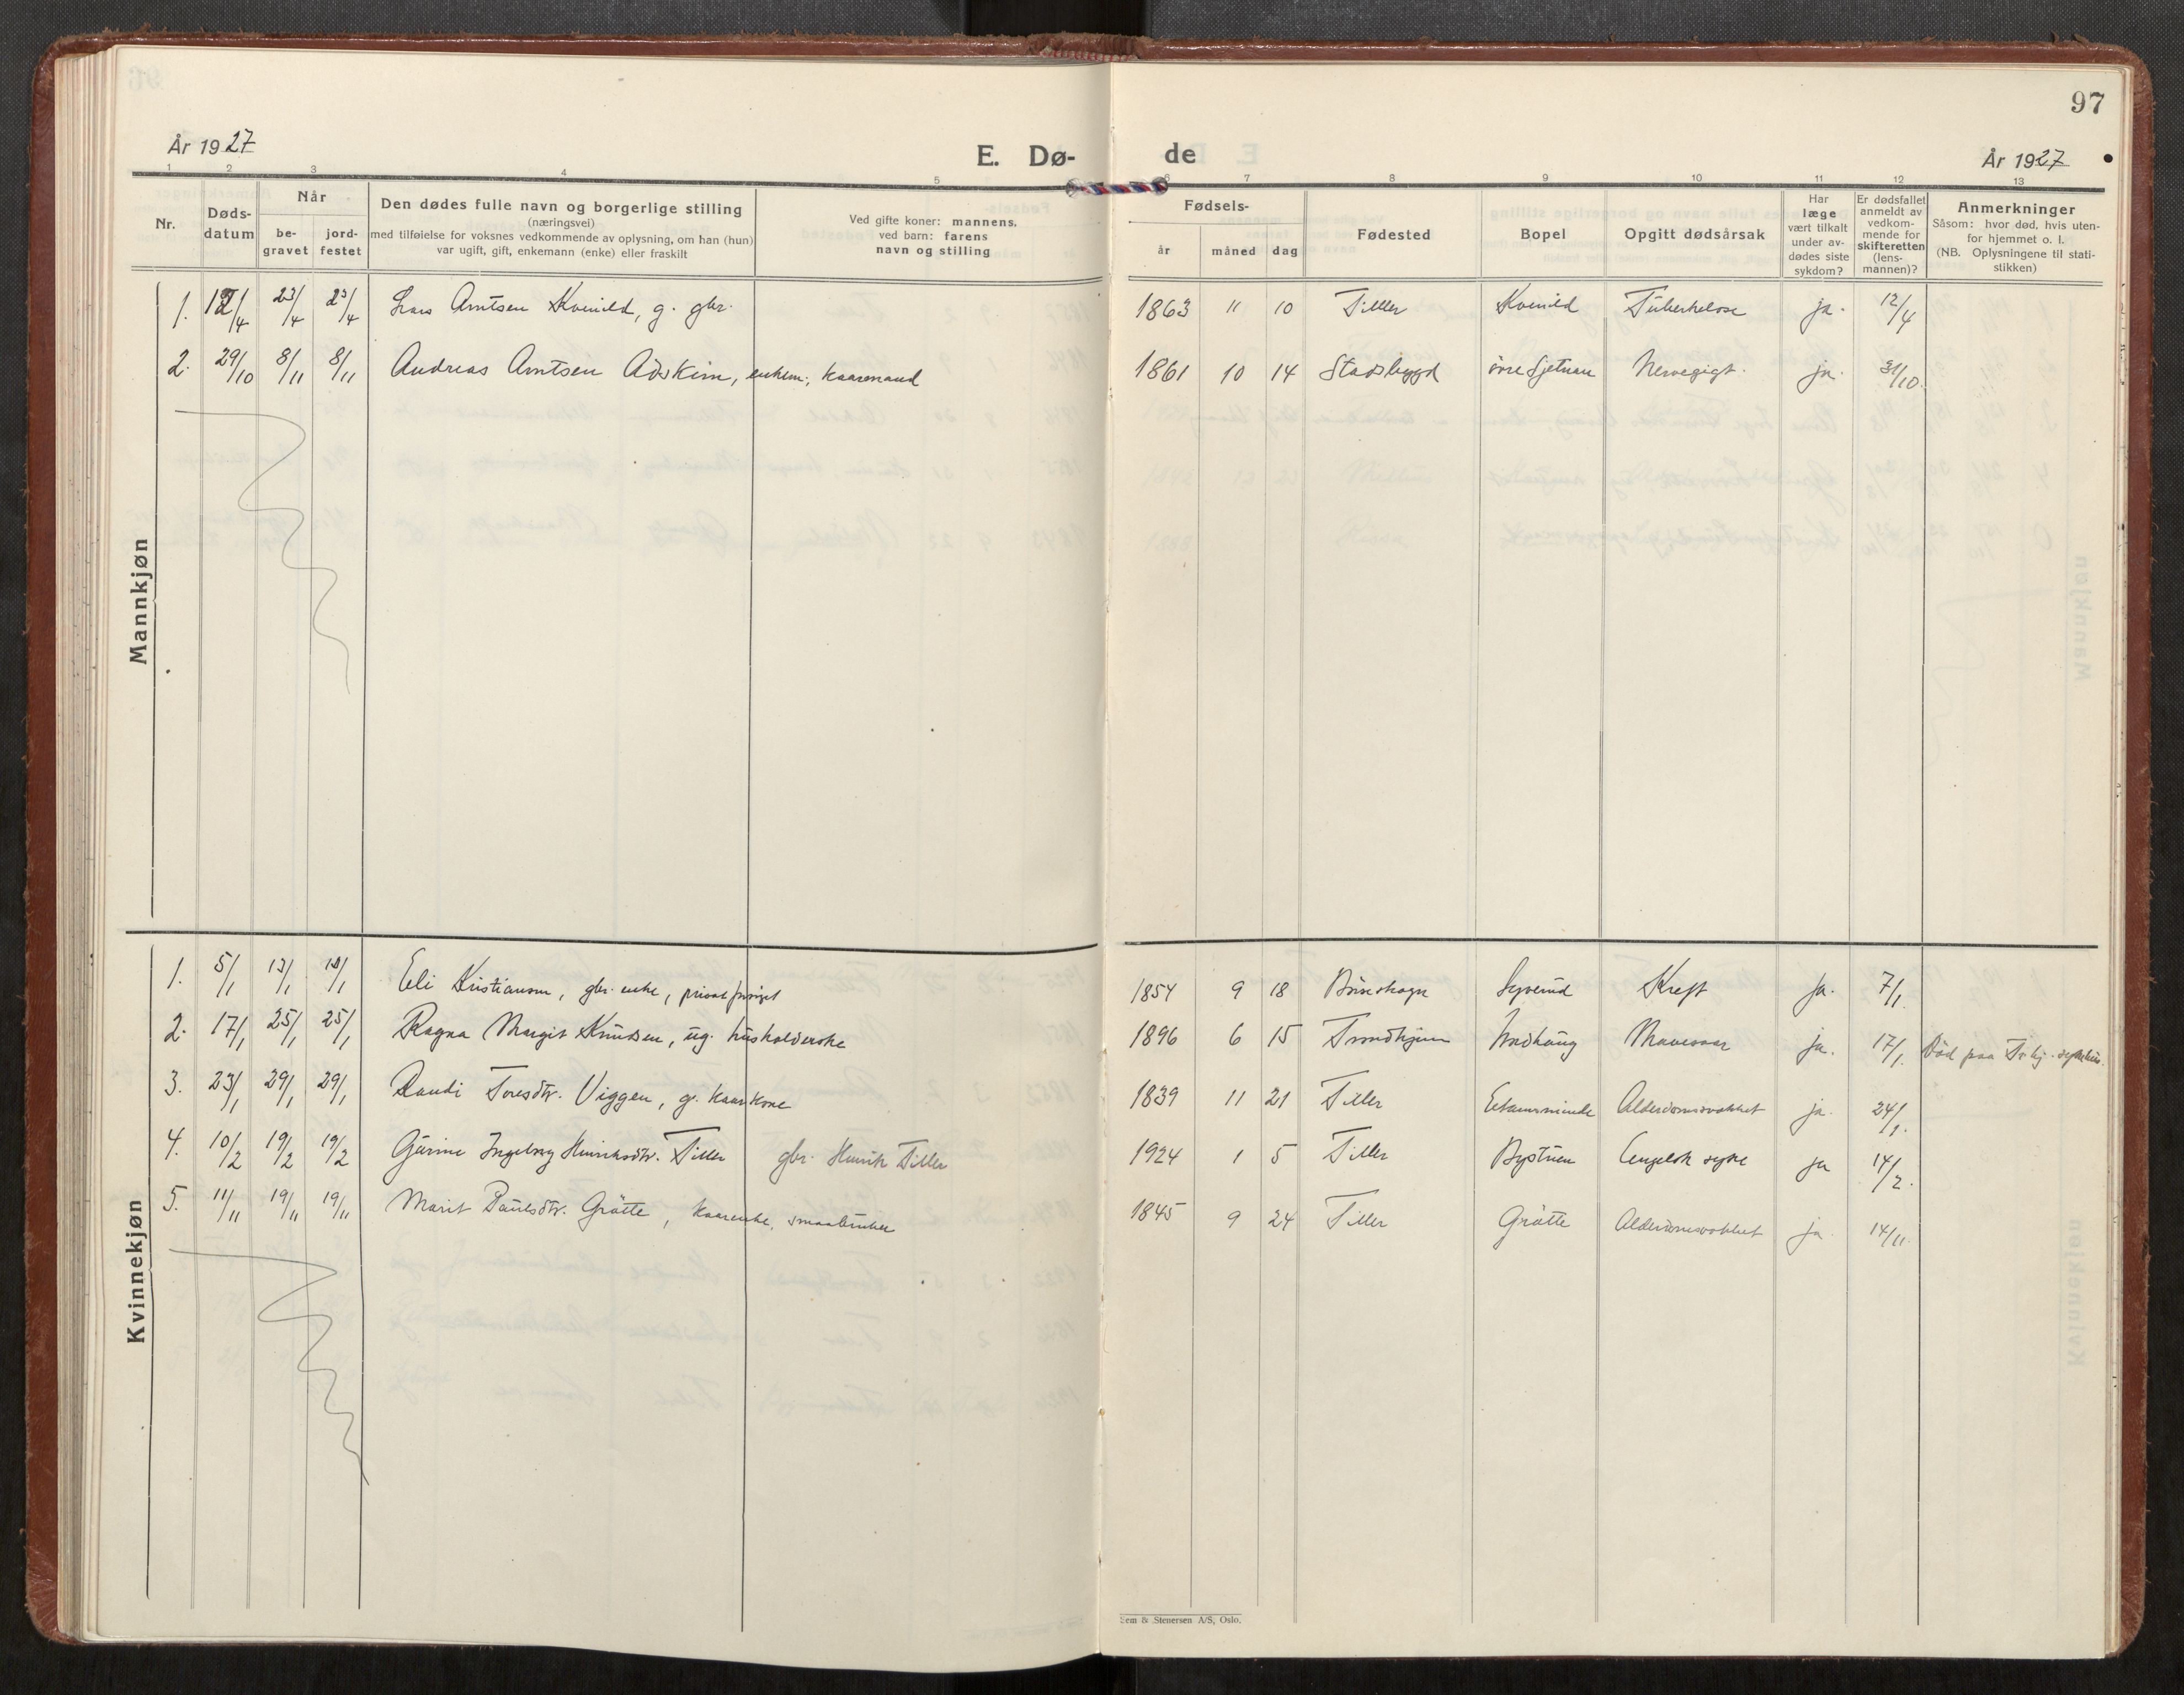 97
År 1927
E. Dø-
de
År 1927
1 2 3 4 5 6 7 8 9 10 11 12 13
Nr.
Døds-
datum
Når
be-
gravet
jord-
festet
Den dødes fulle navn og borgerlige stilling
(næringsvei)
med tilføielse for voksnes vedkommende av oplysning, om han (hun)
var ugift, gift, enkemann (enke) eller fraskilt
Ved gifte koner: mannens,
ved barn: farens
navn og stilling
Fødsels-
år måned dag
Fødested
Bopel
Opgitt dødsårsak
Har
læge
vært tilkalt
under av-
dødes siste
sykdom?
Er dødsfallet
anmeldt av
vedkom-
mende for
skifteretten
(lens-
mannen)?
Anmerkninger
Såsom: hvor død, hvis uten-
for hjemmet o. l.
(NB. Oplysningene til stati-
stikken)
Mannkjøn
1. 12/4 23/4 23/4 Lars Arntsen Kvenild, g. gbr. 1863 11 10 Tiller Kvenild Tuberkelose ja. 12/4
2. 29/10 8/11 8/11 Andreas Arntsen Adskim, enkem., kaarmand 1861 10 14 Stadsbygd övre Sjetnan Nervegigt. ja. 31/10.
Kvinnekjøn
1. 5/1 13/1 13/1 Eli Kristiansen, gbr. enke, privat forsörget 1854 9 18 Börseskogn Kreft ja. 7/1.
2. 17/1 25/1 25/1 Ragna Margit Knudsen, ug. husholderske 1896 6 15 Trondhjem Mavesaar ja. 17/1. Död paa Trhj. sykehus.
3. 23/1 29/1 29/1 Randi Toresdtr. Viggen, g. kaarkone 1839 11 21 Tiller Alderdomssvakhet ja. 24/1.
4. 10/2 19/2 19/2 Gurine Ingeborg Henriksdtr. Tiller gbr. Henrik Tiller 1924 1 5 Tiller Rystuen Engelsk syke ja 14/2.
5. 11/11 19/11 19/11 Marit Paulsdtr. Grötte, kaarenke, smaabruker 1845 9 24 Tiller Grötte Alderdomssvakhet ja. 14/11.
Sem & Stenersen A/S, Oslo.